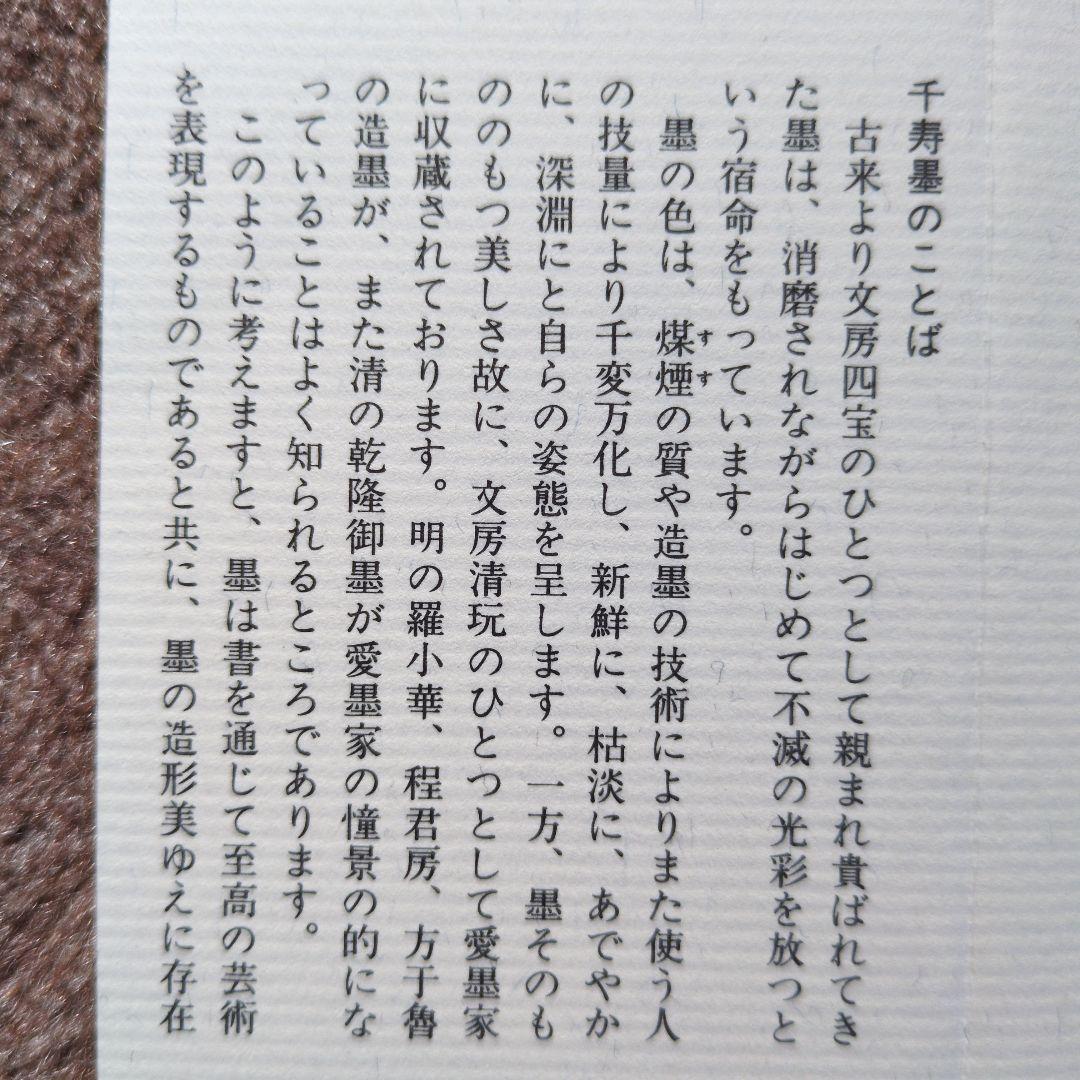 千寿墨のことば
古来より文房四宝のひとつとして親まれ貴ばれてき
た墨は、消磨されながらはじめて不滅の光彩を放つと
いう宿命をもっています。
墨の色は、煤煙の質や造墨の技術によりまた使う人
すす
の技量により千変万化し、新鮮に、枯淡に、あでやか
に、深淵にと自らの姿態を呈します。一方、墨そのも
ののもつ美しさ故に、文房清玩のひとつとして愛墨家
に収蔵されております。明の羅小華、程君房、方于魯
の造墨が、また清の乾隆御墨が愛墨家の憧景の的にな
っていることはよく知られるところであります。
このように考えますと、墨は書を通じて至高の芸術
を表現するものであると共に、墨の造形美ゆえに存在